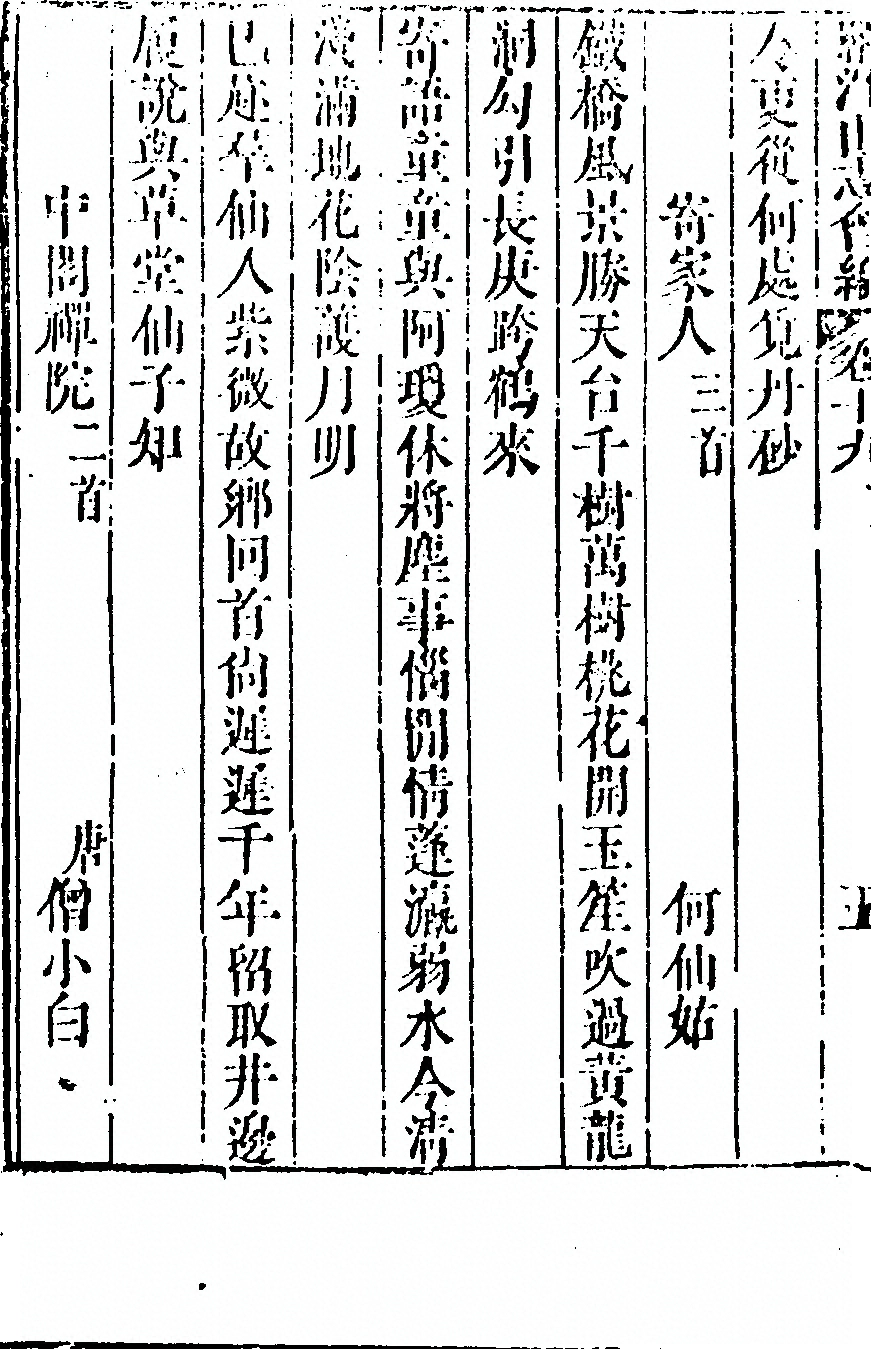 羅浮山志會編 卷十九 五
今更從何處覓丹砂
寄家人 三首 何仙姑
鐵橋風景勝天台千樹萬樹桃花開玉笙吹過黃龍
洞勾引長庚跨鶴來
寄語童童與阿瓊休將塵事惱閒情蓬瀛弱水今清
淺滿地花陰護月明
已趂羣仙入紫微故鄉回首尙遲遲千年留取井邊
履說與草堂仙子知
中閣禪院 二首 唐 僧小白